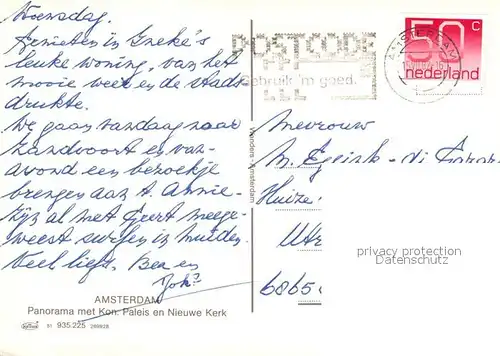 Woensdag.
Genieten in Ineke's
leuke woning, van het
mooie weer en de stads-
drukte.
We gaan vandaag naar
Zandvoort en van-
avond een bezoekje
brengen aan t. Annie-
Zijn al met Geert meege-
weest surfen in Muiden.
Veel liefs. Ben en
Joh?
AMSTERDAM
Panorama met Kon. Paleis en Nieuwe Kerk
91 935.225 280928
POSTCODE
Gebruik 'm goed.
AMSTERDAM
50 c
nederland
Wonders Amsterdam
Mevrouw
M. - di
Huize
Utr
6865
privacy protection
Datenschutz